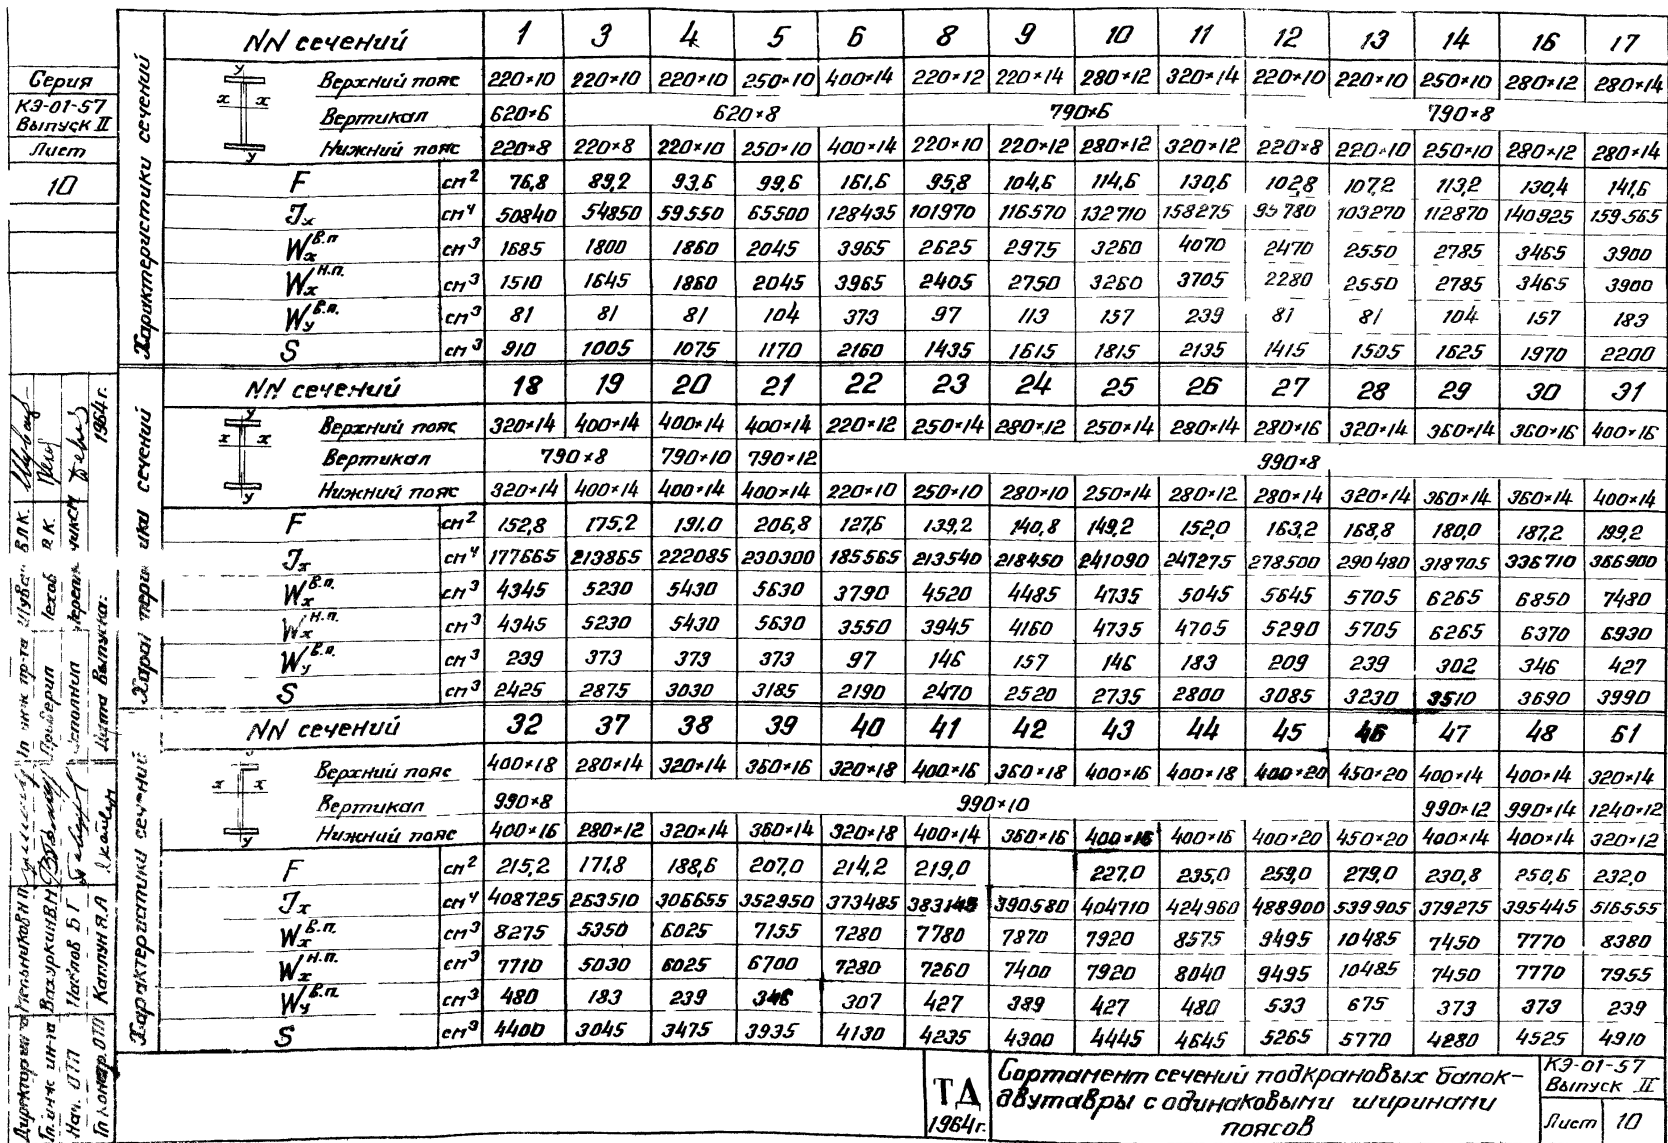 NN сечений 1 3 4 5 6 8 9 10 11 12 13 14 16 17
Верхний пояс 220×10 220×10 220×10 250×10 400×14 220×12 220×14 280×12 320×14 220×10 220×10 250×10 280×12 280×14
Вертикал 620×6 620×8 790×6 790×8
Нижний пояс 220×8 220×8 220×10 250×10 400×14 220×10 220×12 280×12 320×12 220×8 220×10 250×10 280×12 280×14
F см² 76,8 89,2 93,6 99,6 161,6 95,8 104,6 114,6 130,6 102,8 107,2 113,2 130,4 141,6
Jx см⁴ 50840 54850 59550 65500 128435 101970 116570 132710 158275 95780 103270 112870 140925 159565
Wx в.п см³ 1685 1800 1860 2045 3965 2625 2975 3260 4070 2470 2550 2785 3465 3900
Wx н.п. см³ 1510 1645 1860 2045 3965 2405 2750 3260 3705 2280 2550 2785 3465 3900
Wy в.п. см³ 81 81 81 104 373 97 113 157 239 81 81 104 157 183
S см³ 910 1005 1075 1170 2160 1435 1615 1815 2135 1415 1505 1625 1970 2200
Характеристики сечений
Серия
КЭ-01-57
Выпуск II
Лист
10
NN сечений 18 19 20 21 22 23 24 25 26 27 28 29 30 31
Верхний пояс 320×14 400×14 400×14 400×14 220×12 250×14 280×12 250×14 280×14 280×16 320×14 360×14 360×16 400×16
Вертикал 790×8 790×10 790×12 990×8
Нижний пояс 320×14 400×14 400×14 400×14 220×10 250×10 280×10 250×14 280×12 280×14 320×14 360×14 360×14 400×14
F см² 152,8 175,2 191.0 206,8 127,6 139,2 140,8 149,2 152,0 163,2 168,8 180,0 187,2 199,2
Jx см⁴ 177665 213865 222085 230300 185565 213540 218450 241090 247275 278500 290480 318705 336710 366900
Wx в.п. см³ 4345 5230 5430 5630 3790 4520 4485 4735 5045 5645 5705 6265 6850 7480
Wx н.п. см³ 4345 5230 5430 5630 3550 3945 4160 4735 4705 5290 5705 6265 6370 6930
Wy в.п. см³ 239 373 373 373 97 146 157 146 183 209 239 302 346 427
S см³ 2425 2875 3030 3185 2190 2470 2520 2735 2800 3085 3230 3510 3690 3990
сечений
NN сечений 32 37 38 39 40 41 42 43 44 45 46 47 48 61
Верхний пояс 400×18 280×14 320×14 360×16 320×18 400×16 360×18 400×16 400×18 400×20 450×20 400×14 400×14 320×14
Вертикал 990×8 990×10 990×12 990×14 1240×12
Нижний пояс 400×16 280×12 320×14 360×14 320×18 400×14 360×16 400×16 400×16 400×20 450×20 400×14 400×14 320×12
F см² 215,2 171,8 188,6 207,0 214,2 219,0 227,0 235,0 259,0 279,0 230,8 250,6 232,0
Jx см⁴ 408725 263510 306655 352950 373485 383145 390580 404710 424960 488900 539905 379275 395445 516555
Wx в.п. см³ 8275 5350 6025 7155 7280 7780 7870 7920 8575 9495 10485 7450 7770 8380
Wx н.п. см³ 7710 5030 6025 6700 7280 7260 7400 7920 8040 9495 10485 7450 7770 7955
Wy в.п. см³ 480 183 239 346 307 427 389 427 480 533 675 373 373 239
S см³ 4400 3045 3475 3935 4130 4235 4300 4445 4645 5265 5770 4280 4525 4910
Характеристики сечений
1964г.
Дата выпуска:
Каплун Я.А
ТД
1964г.
Сортамент сечений подкрановых балок-
двутавры с одинаковыми ширинами
поясов
КЭ-01-57
Выпуск II
Лист 10